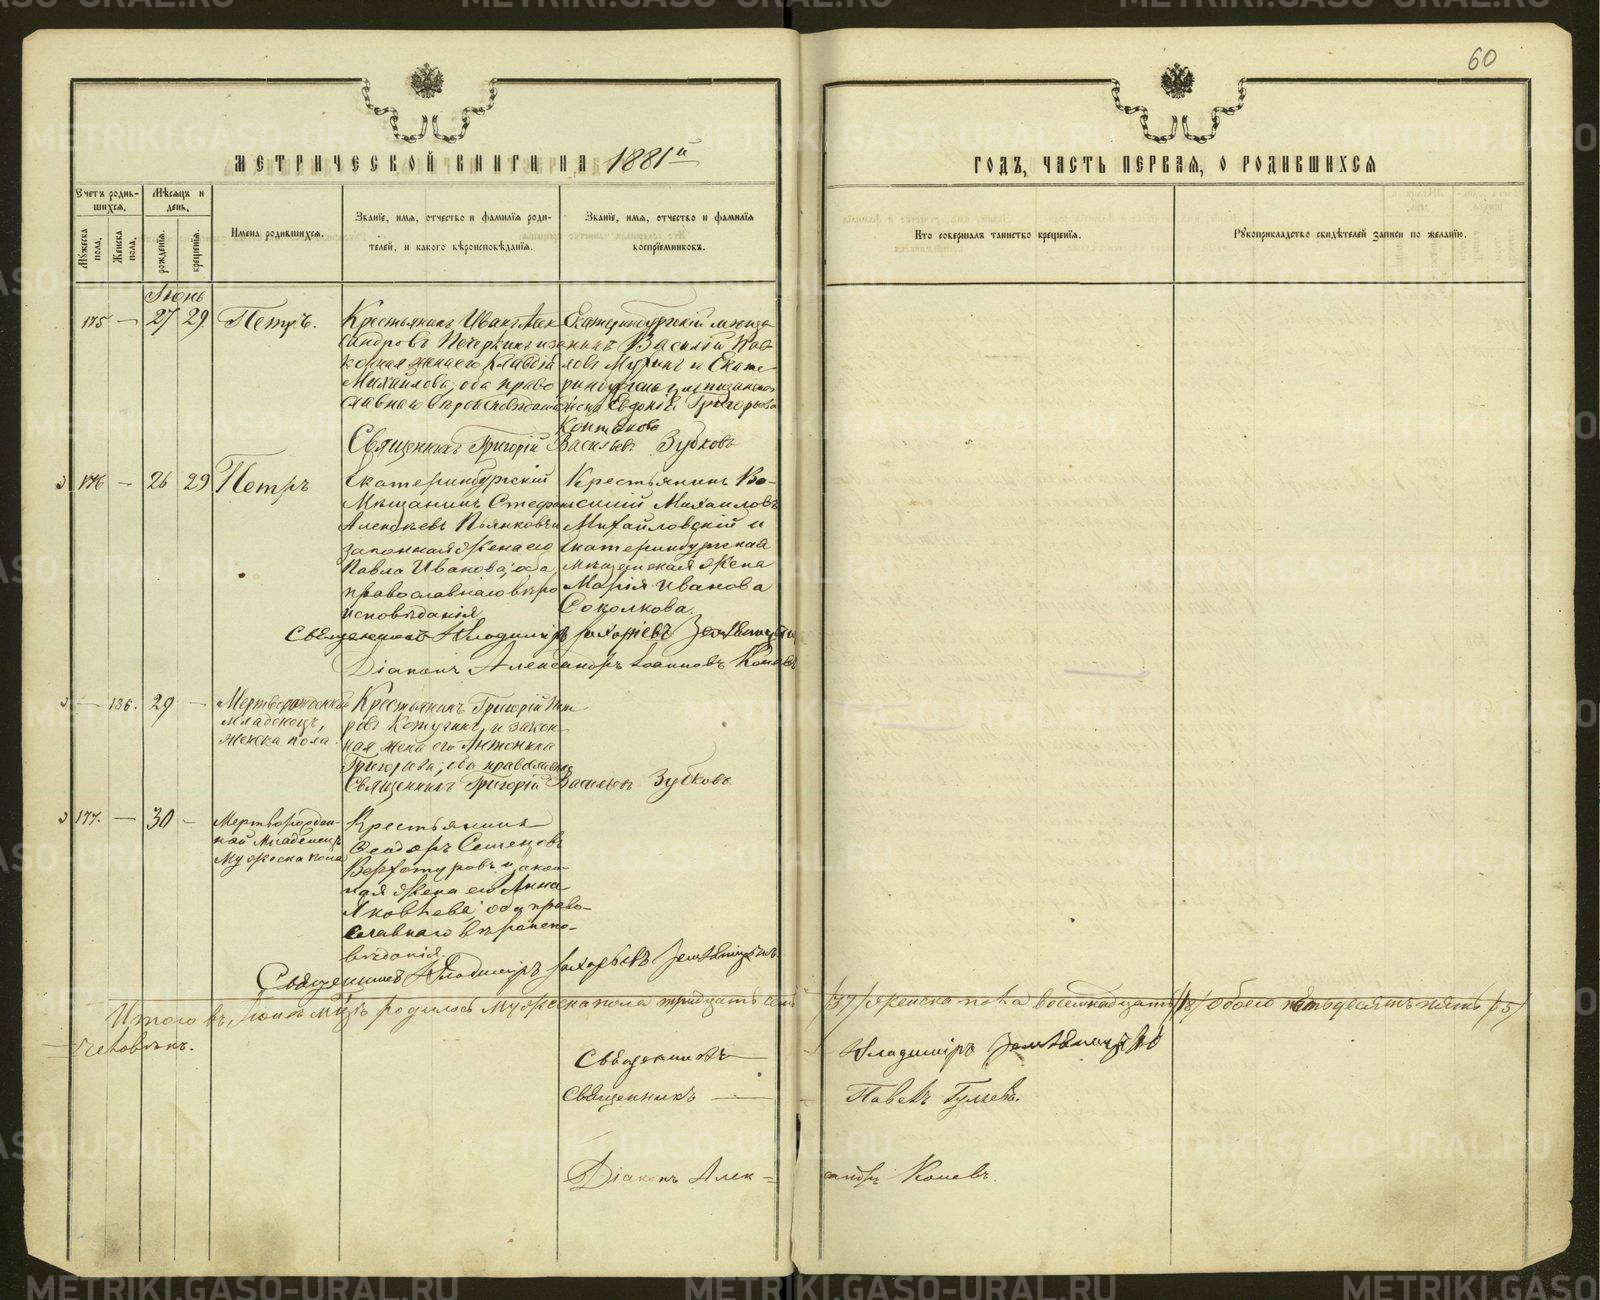 60
МЕТРИЧЕСКОЙ КНИГИ НА 1881й
ГОДЪ, ЧАСТЬ ПЕРВАЯ, О РОДИВШИХСЯ
Счетъ родившихся.
Мужеска пола.
Женска пола.
Мѣсяцъ и день.
рожденія.
крещенія.
Имена родившихся.
Званіе, имя, отчество и фамилія родителей, и какого вѣроисповѣданія.
Званіе, имя, отчество и фамилія воспріемниковъ.
Кто совершалъ таинство крещенія.
Рукоприкладство свидѣтелей записи по желанію.
Іюнь
175 — 27 29 Петръ.
Крестьянинъ Иванъ Алек
сандровъ Печеркинъ и за
конная жена его Клавдія
Михайлова, оба право
славнаго вѣроисповѣданія
Екатеринбургскій мѣща
нинъ Василій
ловъ Мухинъ и Екате
ринбургская мѣщанская
жена Евдокія Григорьева
Священникъ Григорій Васильевъ Зубковъ
176 — 26 29 Петръ
Екатеринбургскій
Мѣщанинъ Стефанъ
Алексѣевъ Пьянковъ и
законная жена его
Павла Иванова, оба
православнаго вѣро
исповѣданія
Крестьянинъ Ва-
силій Михаиловъ
Михайловскій и
Екатеринбургская
мѣщанская жена
Марія Иванова
Соколкова.
Священникъ Владиміръ Захаріевъ Земляницынъ
Діаконъ Александръ Іоанновъ Коневъ
— 136. 29 —
Мертворожденный
младенецъ,
женска пола
Крестьянинъ Григорій Пет
ровъ и закон
ная жена его Антонина
Григорьева; оба православ
Священникъ Григорій Васильевъ Зубковъ
177. — 30 —
Мертворожден-
ный Младенецъ
Мужеска пола
Крестьянинъ
Феодоръ Семеновъ
Верхотуровъ и закон-
ная жена его Анна
Яковлева; оба право-
славнаго вѣроиспо-
вѣданія.
Священникъ Владиміръ Захарьевъ Земляницынъ
Итого въ Іюнѣ м–цѣ родилось мужеска пола тридцать семь /37/ женска пола восемнадцать /18/ обоего пятьдесятъ пять /55/
человѣкъ.
Священникъ Владиміръ Земляницынъ
Священникъ — Павелъ Гуляевъ.
Діаконъ Алек=сандръ Коневъ.
METRIKI.GASO-URAL.RU